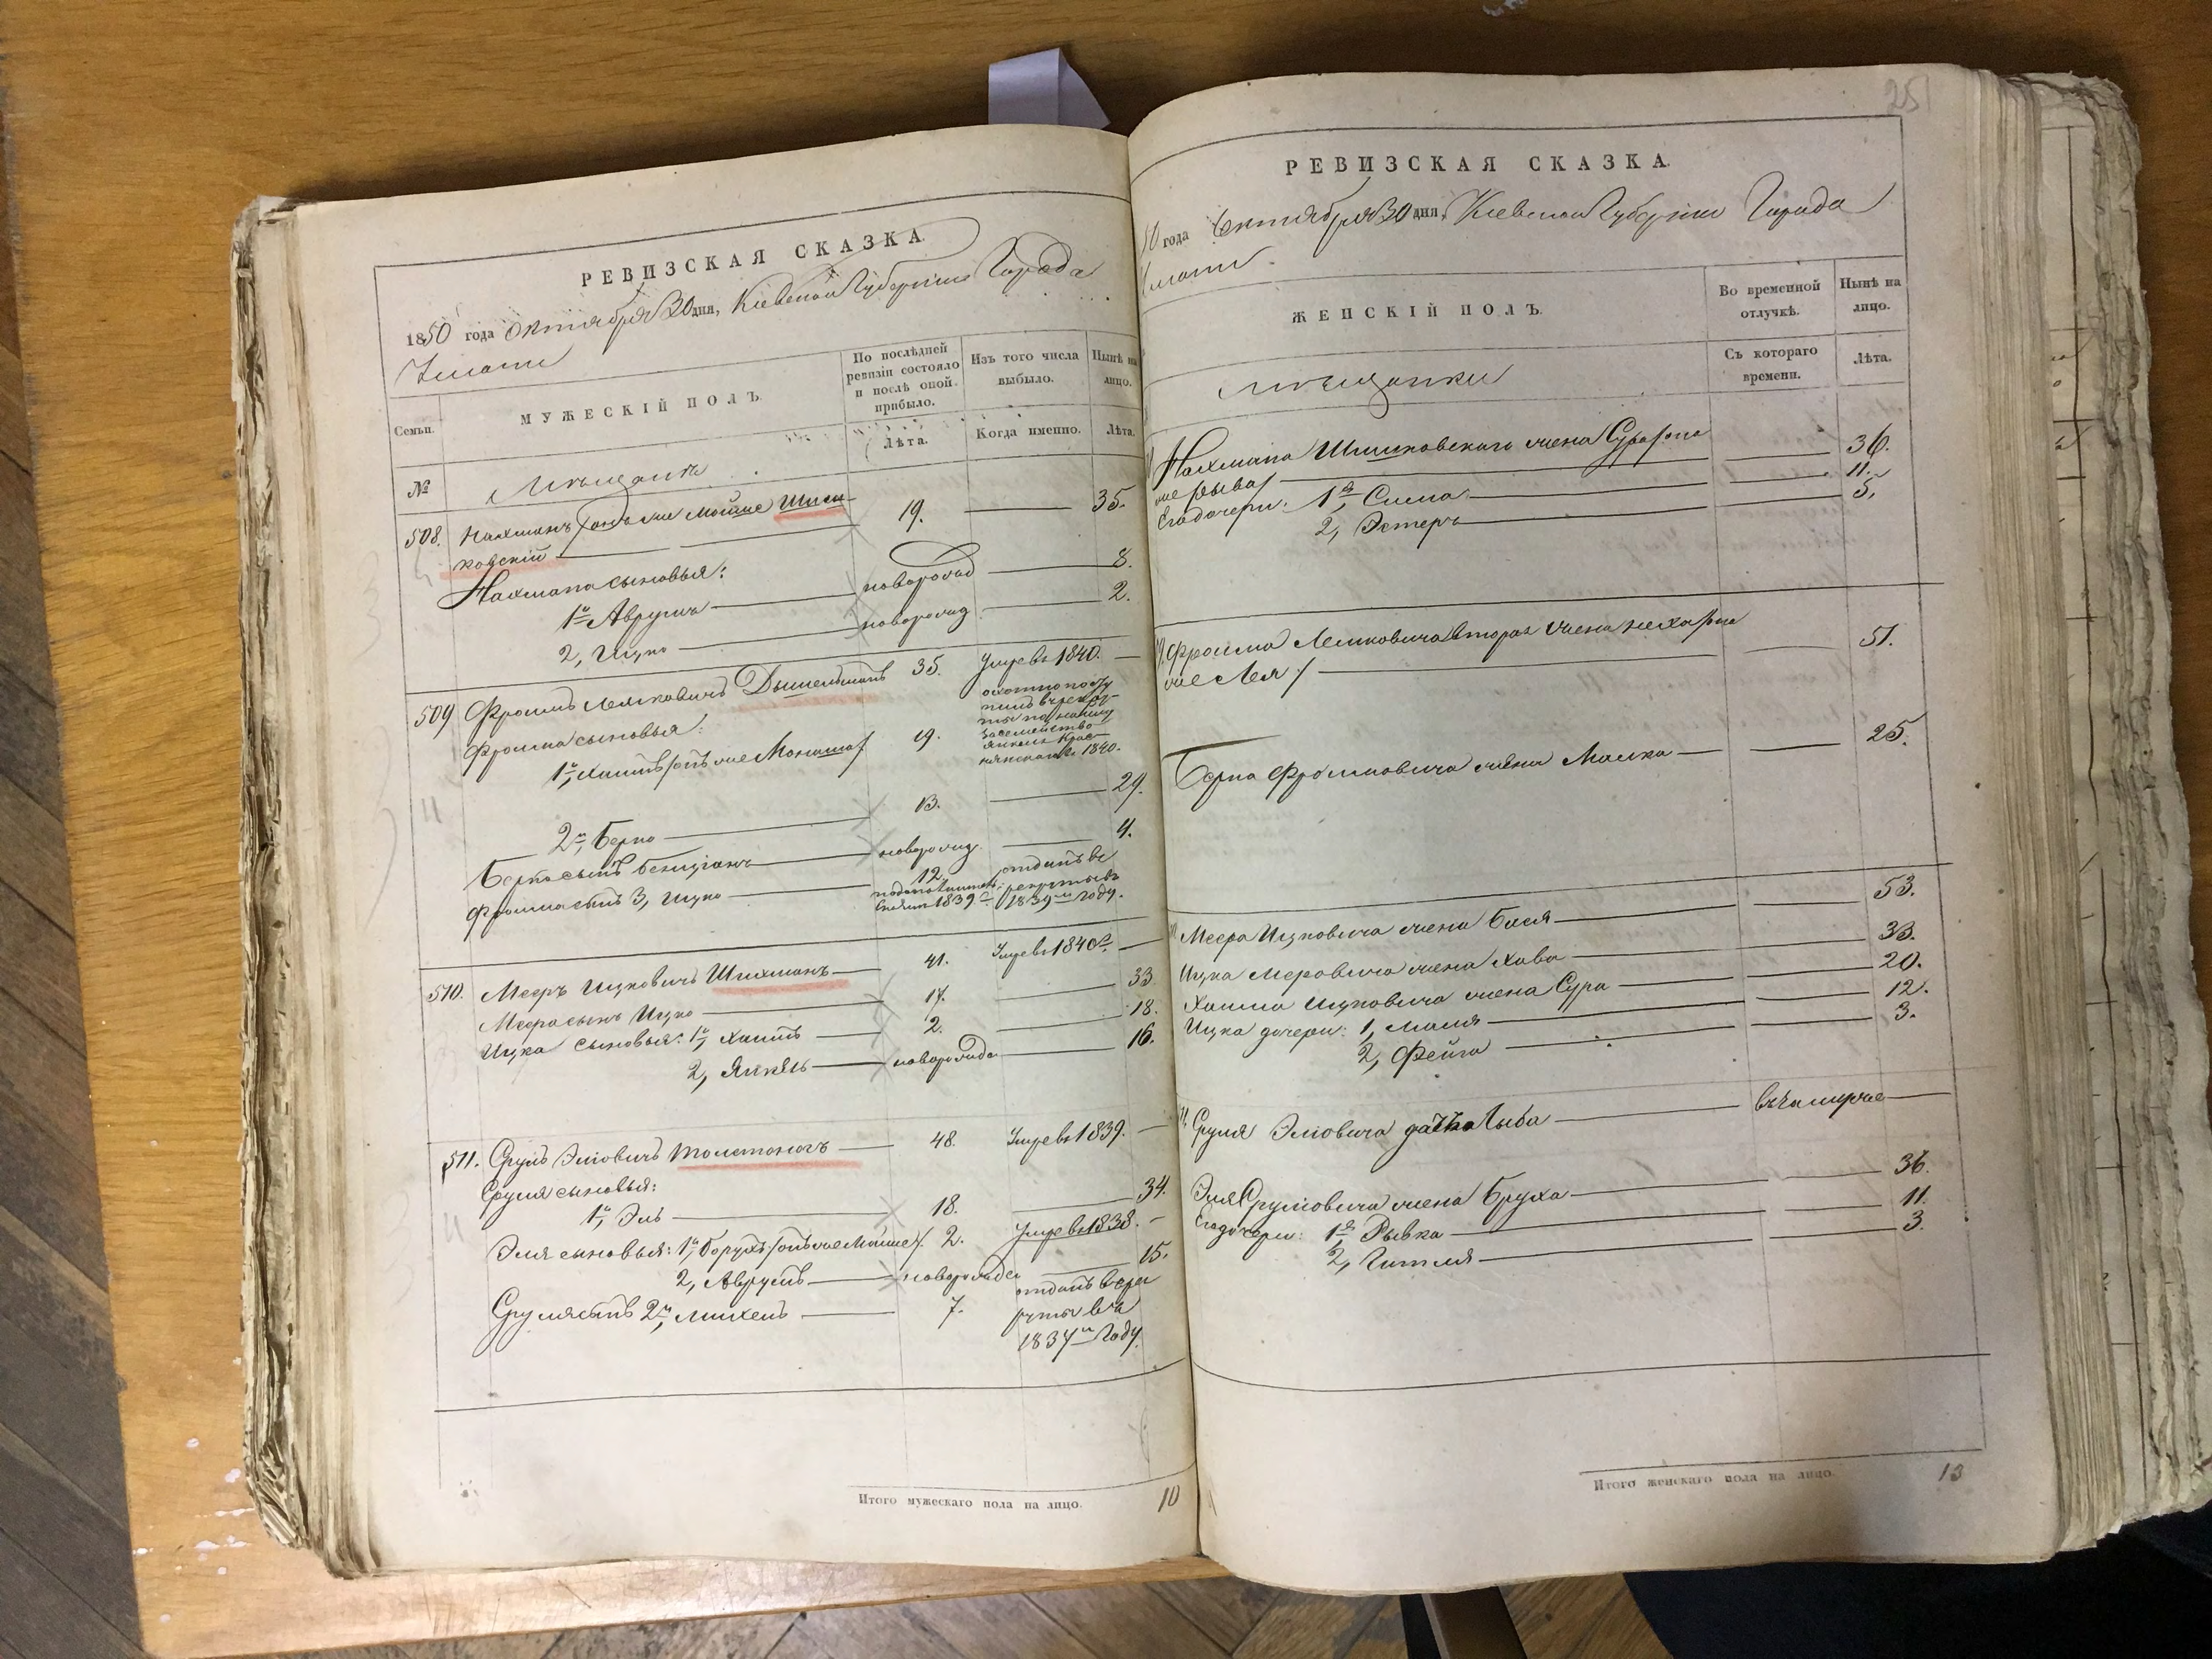 РЕВИЗСКАЯ СКАЗКА.
1850 года Октября 30 дня, Кіевской Губерніи Города
Умани
Семьи. МУЖЕСКІЙ ПОЛЪ. По послѣдней ревизіи состояло и послѣ оной прибыло. Изъ того числа выбыло. Нынѣ на лицо.
№ Лѣта. Когда именно. Лѣта.
Мѣщане
508. Нахманъ /онъ же Мошко Шпи 19. 35.
ковскій
Нахмана сыновья:
1й Аврумъ новорожд 8.
2, Ицко новорожд 2.
509 Фроимъ Лейковичъ 35. Умре въ 1840.
Фроима сыновья:
1й, Хаимъ /онъ же Монаша/ 19. 1840.
2й, Берко 13. 29.
Берка сынъ новорожд. 4.
Фроима сынъ 3, Ицко 12 отданъ въ
1839 рекруты въ
1839м году.
510. Мееръ Ицковичъ Шихманъ 41. Умре въ 1840
Меера сынъ Ицко 17. 33
Ицка сыновья: 1й, Хаимъ 2. 18.
2, Янкель новорожд 16.
511. Сруль Эліовичъ Толстоногъ 48. Умре въ 1839.
Сруля сыновья:
1й, Эль 18. 34.
Эля сыновья: 1й, Борухъ /онъ же Мойше/ 2. Умре въ 1838.
2, Аврумъ новорожд 15.
Сруля сынъ 2й, Михель 7. отданъ въ ре
круты въ
1834м Году.
Итого мужескаго пола на лицо. 10
25
РЕВИЗСКАЯ СКАЗКА.
50 года Октября 30 дня, Кіевской Губерніи Города
Умани.
ЖЕНСКІЙ ПОЛЪ. Во временной отлучкѣ. Нынѣ на лицо.
Съ котораго времени. Лѣта.
Мѣщанки
Нахмана Шпиковскаго жена Сура /она 36.
же Рыва/
Его дочери: 1я, Сима 11.
2, Эстеръ 5.
Фроима Лейковича вторая жена Неха /она 51.
же Лея/
Берка Фроимовича жена Малка 25.
Меера Ицковича жена Бася 53.
Ицка Меровича жена Хава 33.
Хаима Ицковича жена Сура 20.
Ицка дочери: 1, Маля 12.
2, Фейга 3.
Сруля Эліовича дочка Лыба въ замужье
Эля Срулiовича жена Бруха 36.
Его дочери: 1я, Рывка 11.
2, Гитля 3.
Итого женскаго пола на лицо. 13